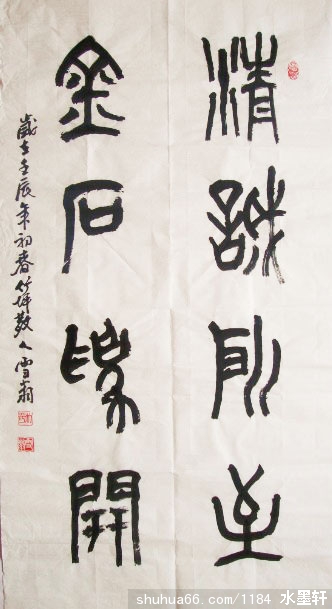 清誠所至
金石為開
歲在壬辰年初春竹坪散人雪翁
shuhua66.com/1184 水墨轩